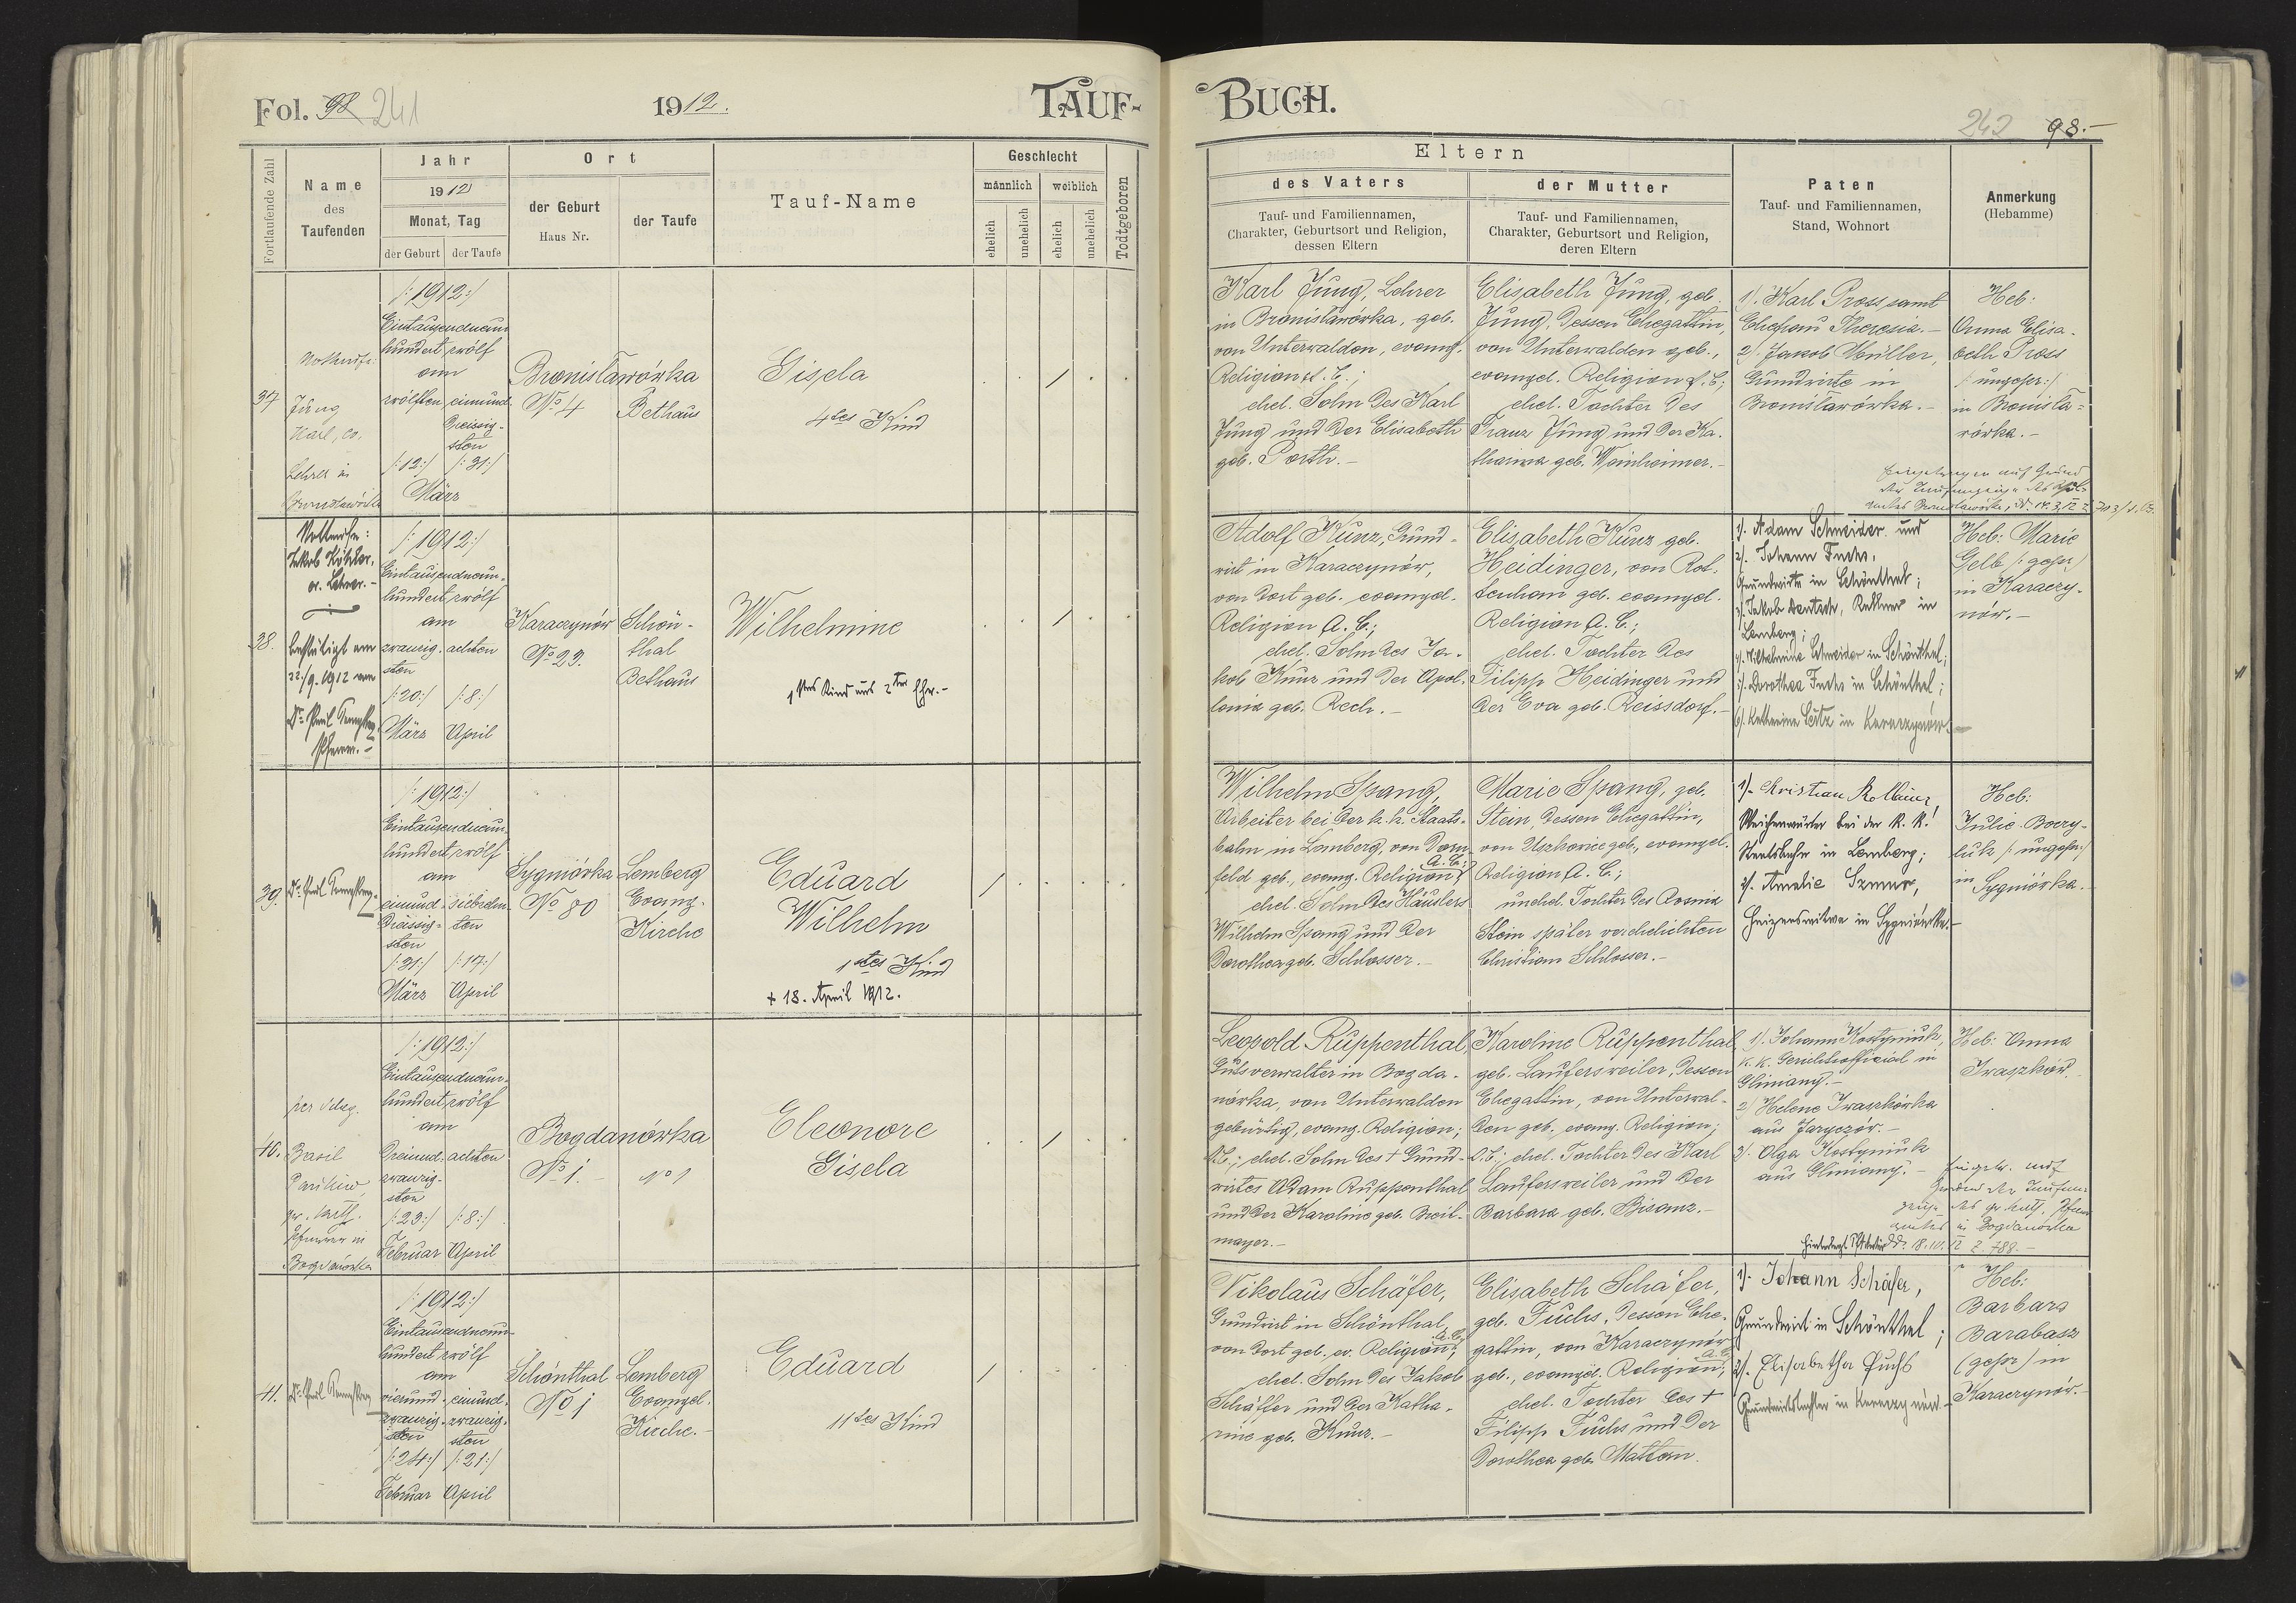 Fol. 98 241
1912.
TAUF-
Fortlaufende Zahl
Name
des
Taufenden
Jahr
1912
Monat, Tag
der Geburt
der Taufe
Ort
der Geburt
Haus Nr.
der Taufe
Tauf-Name
Geschlecht
männlich
weiblich
ehelich
unehelich
ehelich
unehelich
Todtgeboren
37
Jung
Karl, ev.
Lehrer in
/:1912:/
Eintausendneun-
hundert zwölf
am
zwölften
/:12:/
einund-
dreissig-
sten
/:31:/
März
Bronisławówka
No 4
Bethaus
Gisela
4tes Kind
38.
Nottaufe:
Jakob Köhler,
ev. Lehrer.-
bestätigt am
22./9. 1912 vom
Dr. Paul
Pfarrer.-
/:1912:/
Eintausendneun-
hundert zwölf
am
zwanzig-
sten
/:20:/
März
achten
/:8:/
April
Karaczynów
No 23.
Schön-
thal
Bethaus
Wilhelmine
1tes Kind aus 2ter Ehe.-
39.
Dr. Paul
/:1912:/
Eintausendneun-
hundert zwölf
am
einund-
dreissig-
sten
/:31:/
März
siebzehn-
ten
/:17:/
April
Sygniówka
No 80
Lemberg
Evang.
Kirche
Eduard
Wilhelm
1tes Kind
+ 18. April 1912.
40.
Basil
gr. kath.
Pfarrer in
Bogdanówka
/:1912:/
Eintausendneun-
hundert zwölf
am
dreiund-
zwanzig-
sten
/:23:/
Februar
achten
/:8:/
April
Bogdanówka
No 1.
No 1
Eleonore
Gisela
41.
Dr. Paul
/:1912:/
Eintausendneun-
hundert zwölf
am
vierund-
zwanzig-
sten
/:24:/
Februar
einund-
zwanzig-
sten
/:21:/
April
Schönthal
No 1
Lemberg
Evangel.
Kirche.-
Eduard
11tes Kind
BUCH.
242 98.-
Eltern
des Vaters
Tauf- und Familiennamen,
Charakter, Geburtsort und Religion,
dessen Eltern
der Mutter
Tauf- und Familiennamen,
Charakter, Geburtsort und Religion,
deren Eltern
Paten
Tauf- und Familiennamen,
Stand, Wohnort
Anmerkung
(Hebamme)
Karl Jung, Lehrer
in Bronisławówka, geb.
von Unterwalden, evang.
Religion H. B.;
ehel. Sohn des Karl
Jung und der Elisabeth
geb. Porth.-
Elisabeth Jung, geb.
Jung, dessen Ehegattin,
von Unterwalden geb.,
evangel. Religion H. B.;
ehel. Tochter des
Franz Jung und der Ka-
tharina geb. Weinheimer.-
1). Karl Pross samt
Ehefrau Theresia.-
2). Jakob Müller,
Grundwirte in
Bronisławówka.-
Heb:
Anna Elisa-
beth Pross
/:ungepr:/
in Bronisła-
wówka.-
Adolf Kunz, Grund-
wirt in Karaczynów,
von dort geb. evangel.
Religion A. B.;
ehel. Sohn des Ja-
kob Kunz und der Apol-
lonia geb. Rech.-
Elisabeth Kunz geb.
Heidinger, von Rot-
tenhan geb. evangel.
Religion A. B.;
ehel. Tochter des
Filipp Heidinger und
der Eva geb. Reissdorf.-
1). Adam Schneider und
2). Johann Fuchs,
Grundwirte in Schönthal;
3). Jakob Deutsch, Kellner in
Lemberg;
4). Wilhelmine Schneider in Schönthal;
5). Dorothea Fuchs in Schönthal;
6). Katharina Seitz in Karaczynów.
Heb: Marie
Gelb /:gepr/
in Karaczy-
nów.-
Wilhelm Spang,
Arbeiter bei der k. k. Staats-
bahn in Lemberg, von Dorn-
feld geb., evang. Religion A. B.;
ehel. Sohn des Häuslers
Wilhelm Spang und der
Dorothea geb. Schlosser.-
Marie Spang, geb.
Stein, dessen Ehegattin,
von Uszkowice geb., evangel.
Religion A. B.;
unehel. Tochter des Rosina
Stein später verehelichten
Christian Schlosser.-
1). Christian Kollmer,
Weichenwärter bei der k. k.
Staatsbahn in Lemberg;
2). Amalie Szmur,
Heizerswitwe in Sygniówka.-
Heb:
Julie Boery-
luk /:ungepr:/
in Sygniówka.-
Leopold Ruppenthal,
Gutsverwalter in Bogda-
nówka, von Unterwalden
gebürtig, evang. Religion;
A.B.; ehel. Sohn des + Grund-
wirtes Adam Ruppenthal
und der Karoline geb. Breit-
mayer.-
Karoline Ruppenthal
geb. Laufersweiler, dessen
Ehegattin, von Unterwal-
den geb. evang. Religion;
A.B.; ehel. Tochter des Karl
Laufersweiler und der
Barbara geb. Bisanz.-
1). Johann Kostyniuk,
k. k. Gerichtsofficial in
Gliniany.-
2) Helene Iwaszkówka
aus Jaryczów.-
3). Olga Kostyniuk
aus Gliniany.-
Heb: Anna
Iwaszków.
in Bogdanówka
Z. 788.-
Nikolaus Schäfer,
Grundwirt in Schönthal,
von dort geb., ev. Religion A.B.;
ehel. Sohn des Jakob
Schäffer und der Katha-
rine geb. Kunz.-
Elisabeth Schäfer,
geb. Fuchs, dessen Ehe-
gattin, von Karaczynów
geb., evangel. Religion A.B.;
ehel. Tochter des +
Filipp Fuchs und der
Dorothea geb. Mattern.
1). Johann Schäfer,
Grundwirt in Schönthal;
2). Elisabetha Fuchs
Grundwirtstochter in Karaczynów.-
Heb:
Barbara
Barabasz
(gepr) in
Karaczynów.-